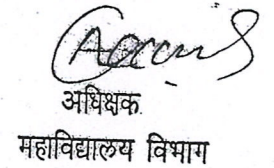 अधिक्षक
महाविद्यालय विभाग